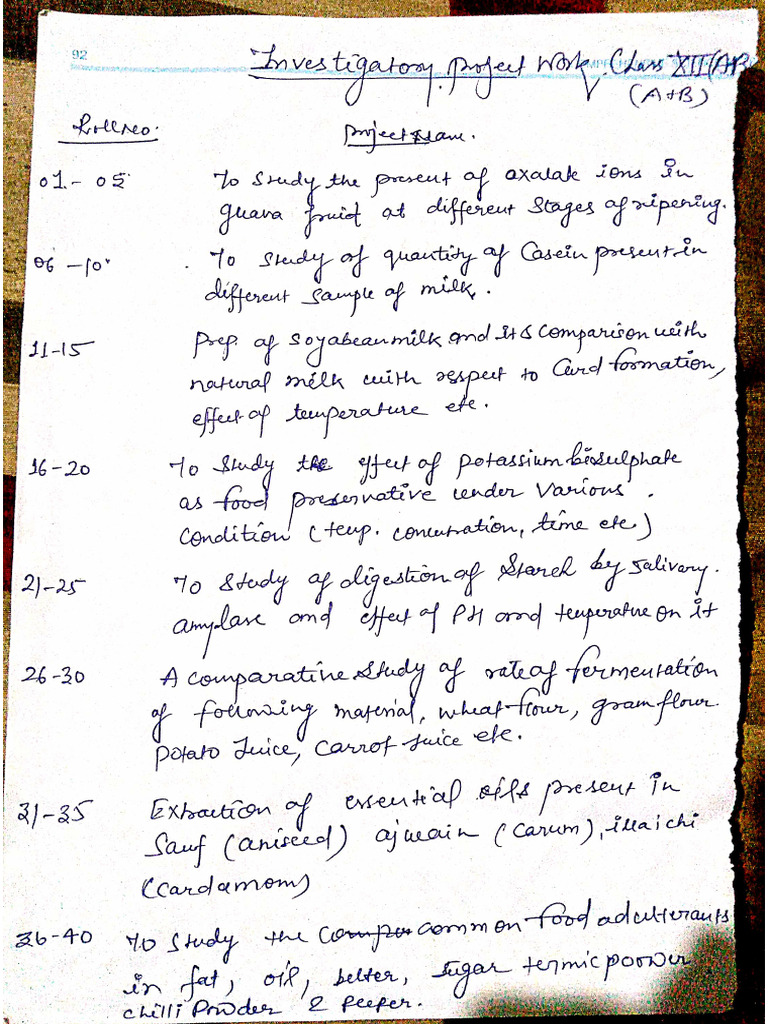 92
Investigatory project work. Class XII (AB
(A+B)
Roll no. Project Name.
01 - 05 To study the present of oxalate ions in
guava fruit at different stages of ripening.
06 - 10 To study of quantity of Casein present in
different sample of milk.
11-15 Prep. of soyabean milk and its comparison with
natural milk with respect to Curd formation,
effect of temperature etc.
16-20 To study the effect of potassium bisulphate
as food preservative under various
condition (temp. concentration, time etc)
21-25 To study of digestion of starch by salivary.
amylase and effect of PH and temperature on it
26-30 A comparative study of rate of fermentation
of following material, wheat flour, gram flour
potato Juice, Carrot juice etc.
31-35 Extraction of essential oils present in
Sauf (aniseed) ajwain (Carum), illaichi
(cardamom)
36-40 To study the common food adulterants
in fat, oil, butter, sugar termic poower
chilli Powder & Peeper.